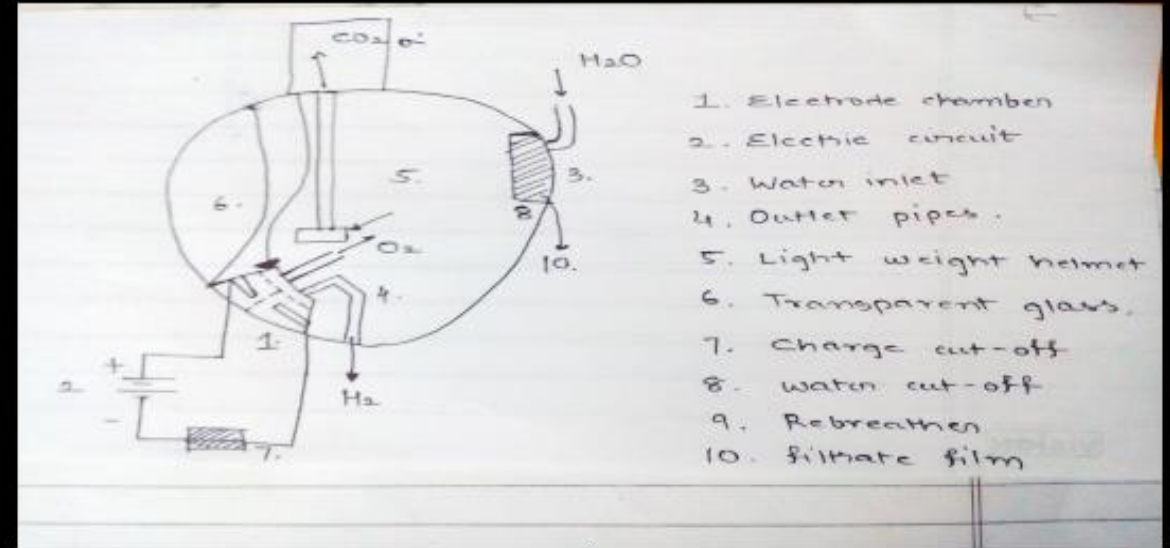 CO2
H2O
1. Electrode chamber
2. Electric circuit
3. Water inlet
4. Outlet pipes.
5. Light weight helmet
6. Transparent glass.
7. Charge cut-off
8. Water cut-off
9. Rebreather
10. filtrate film
5.
3.
6.
8
O2
10.
4.
1.
+
2
-
H2
7.